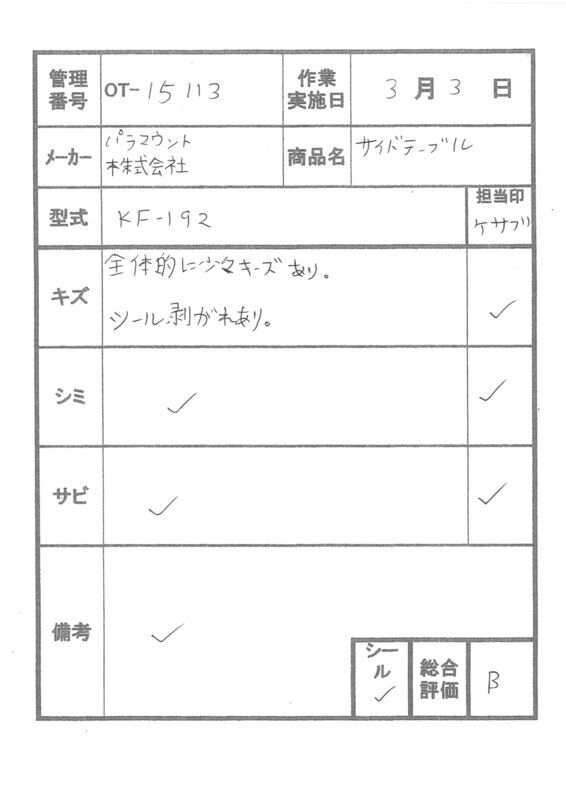 管理番号 OT-15113 作業実施日 3月3日
メーカー パラマウント
株式会社 商品名 サイドテーブル
型式 KF-192 担当印
ケサブリ
キズ 全体的に少々キズあり。
シール剥がれあり。 ✓
シミ ✓ ✓
サビ ✓ ✓
備考 ✓
シール ✓ 総合評価 B